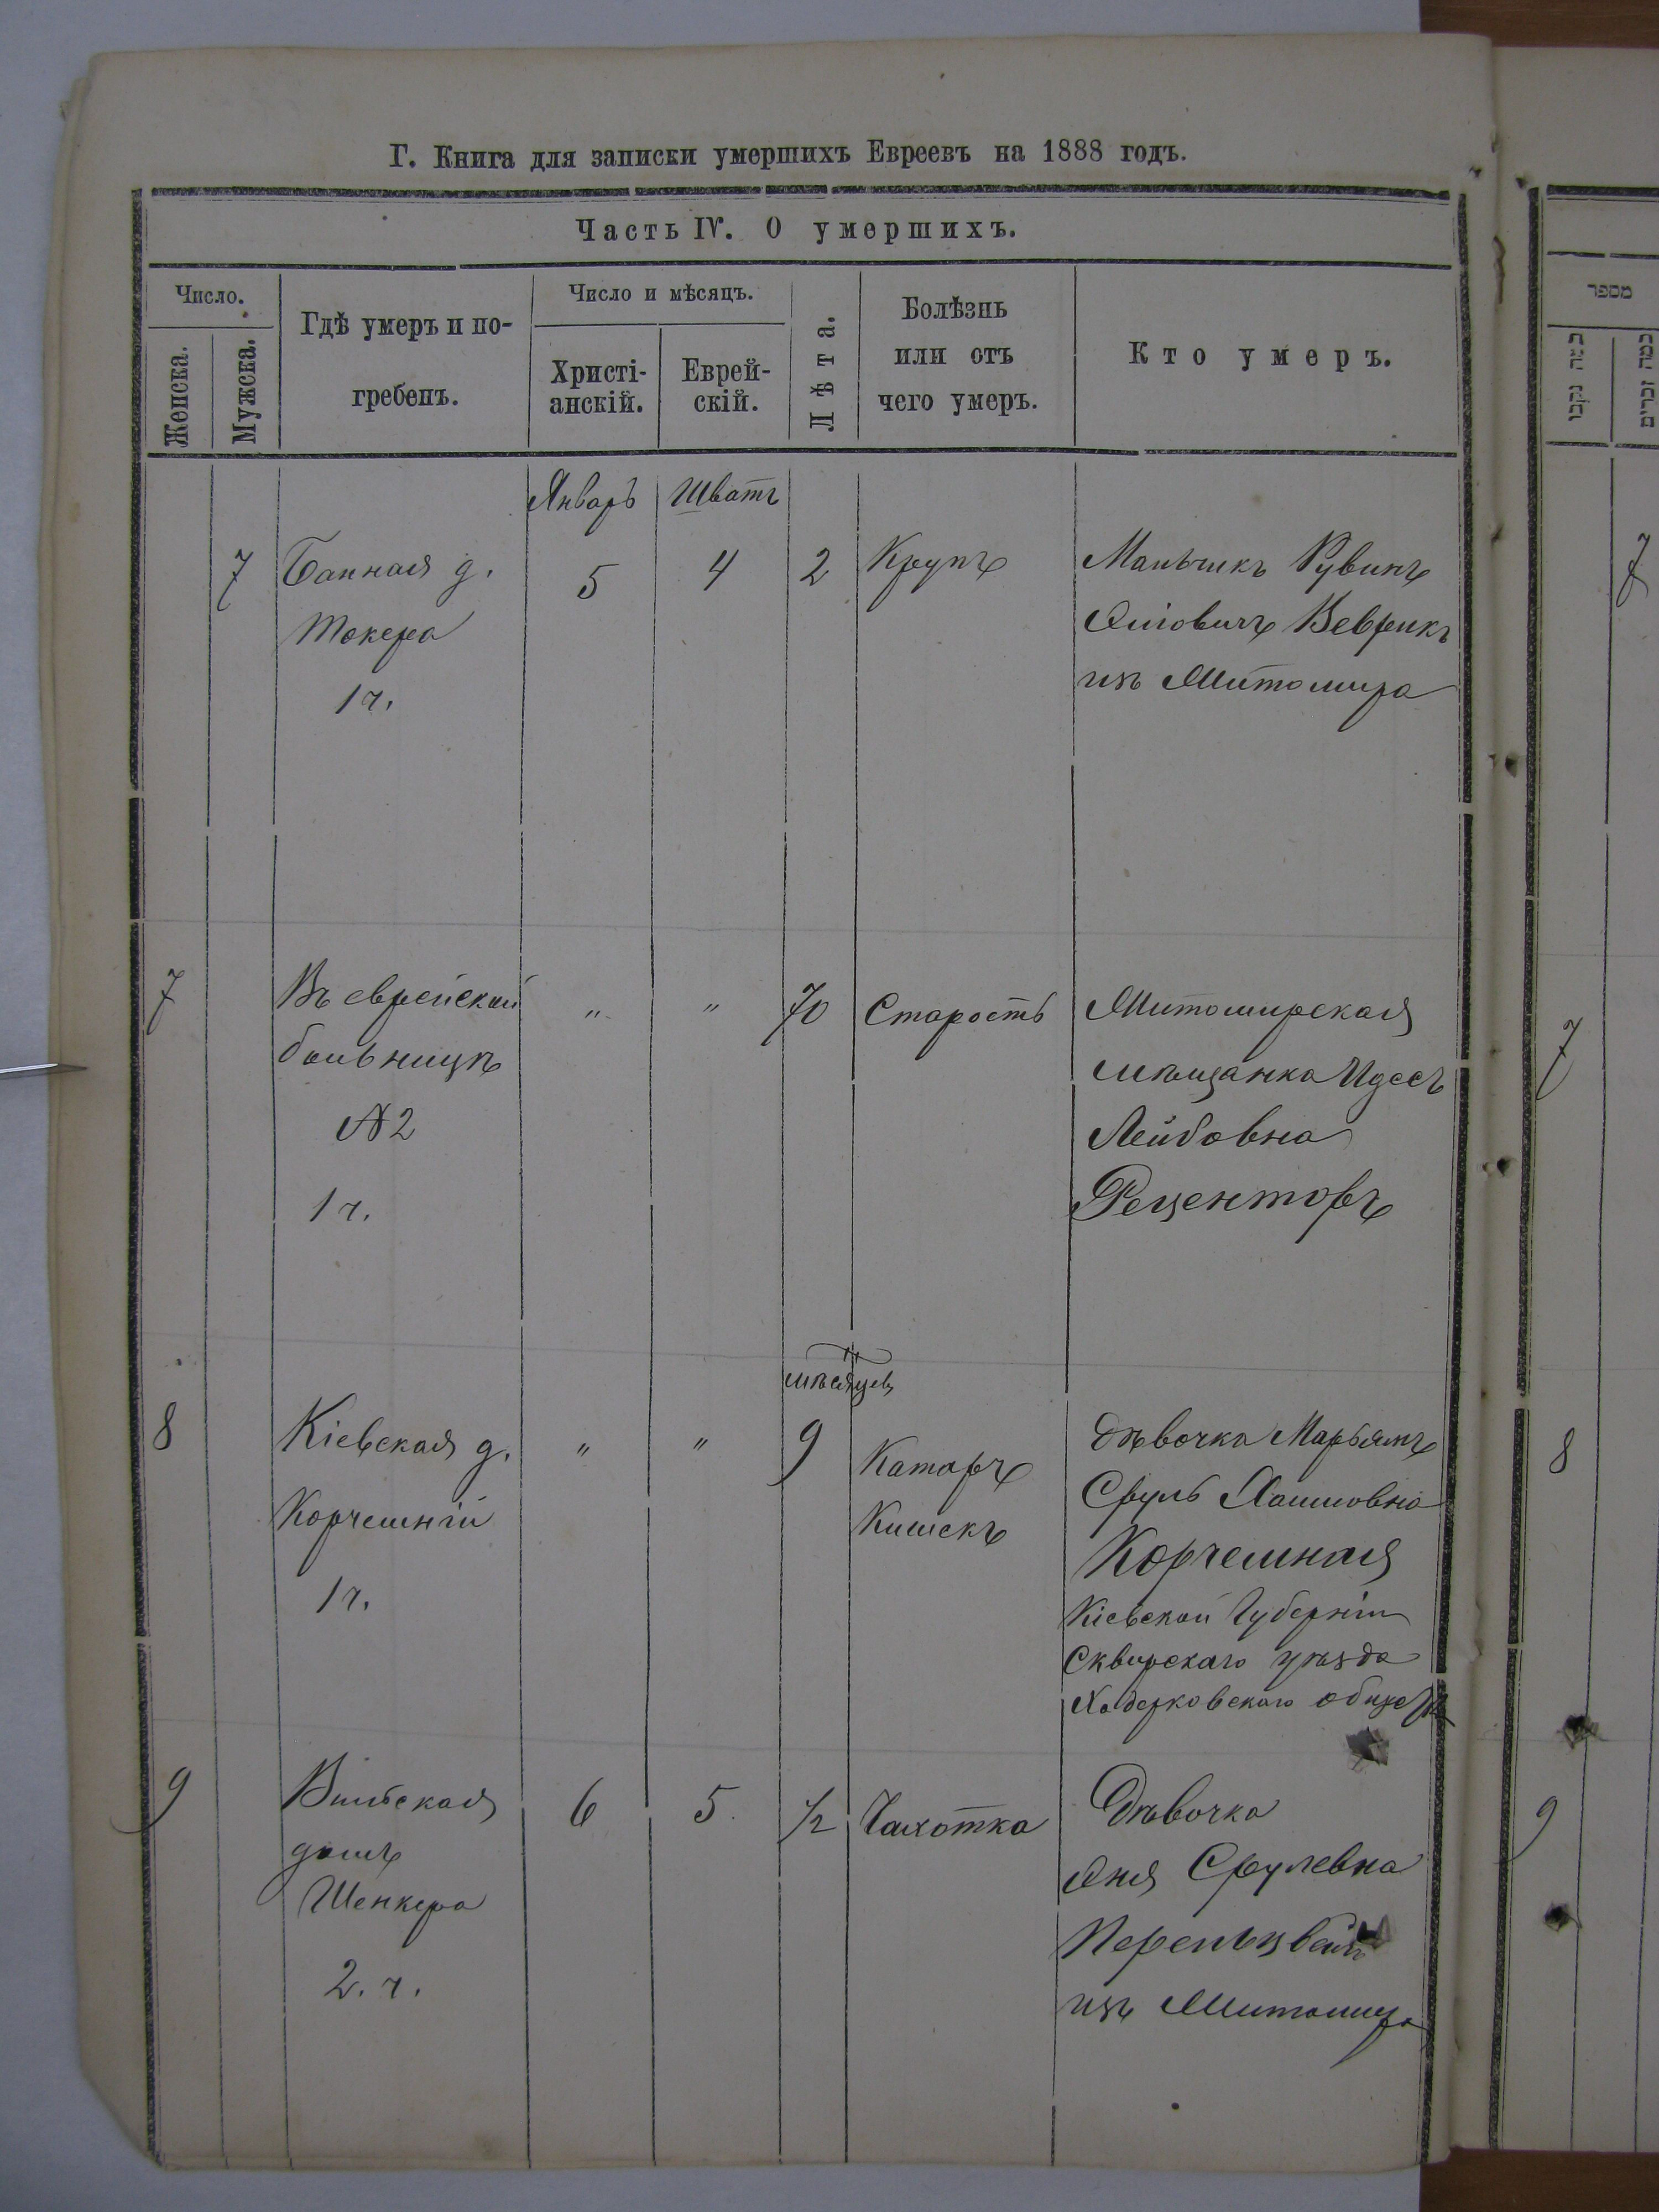 Г. Книга для записки умершихъ Евреевъ на 1888 годъ.
Часть IV. О умершихъ.
Число.
Женска.
Мужска.
Гдѣ умеръ и по-
гребенъ.
Число и мѣсяцъ.
Христі-
анскій.
Еврей-
скій.
Лѣта.
Болѣзнь
или отъ
чего умеръ.
Кто умеръ.
מספר
כמה נקבו
כמה זכרים
Январь
Шватъ
7
Банная д.
Токера
1 ч.
5
4
2
Крупъ
Мальчикъ Рувинъ
Веврикъ
изъ Житомира
7
7
Въ еврейской
больницѣ
№ 2
1 ч.
"
"
70
Старость
Житомирская
мѣщанка Идесъ
Лейбовна
Рецепторъ
7
8
Кіевская д.
Корчемній
1 ч.
"
"
мѣсяцевъ
9
Катаръ
Кишекъ
дѣвочка Марьямъ
Сруль Хаимовна
Корчемная
Кіевской Губерніи
Сквирскаго уѣзда
Ходорковскаго общест
8
9
Вильская
домъ
Шенкера
2. ч.
6
5
1/2
Чахотка
Дѣвочка
Срулевна
Перельцвейгъ
изъ Житомира
9